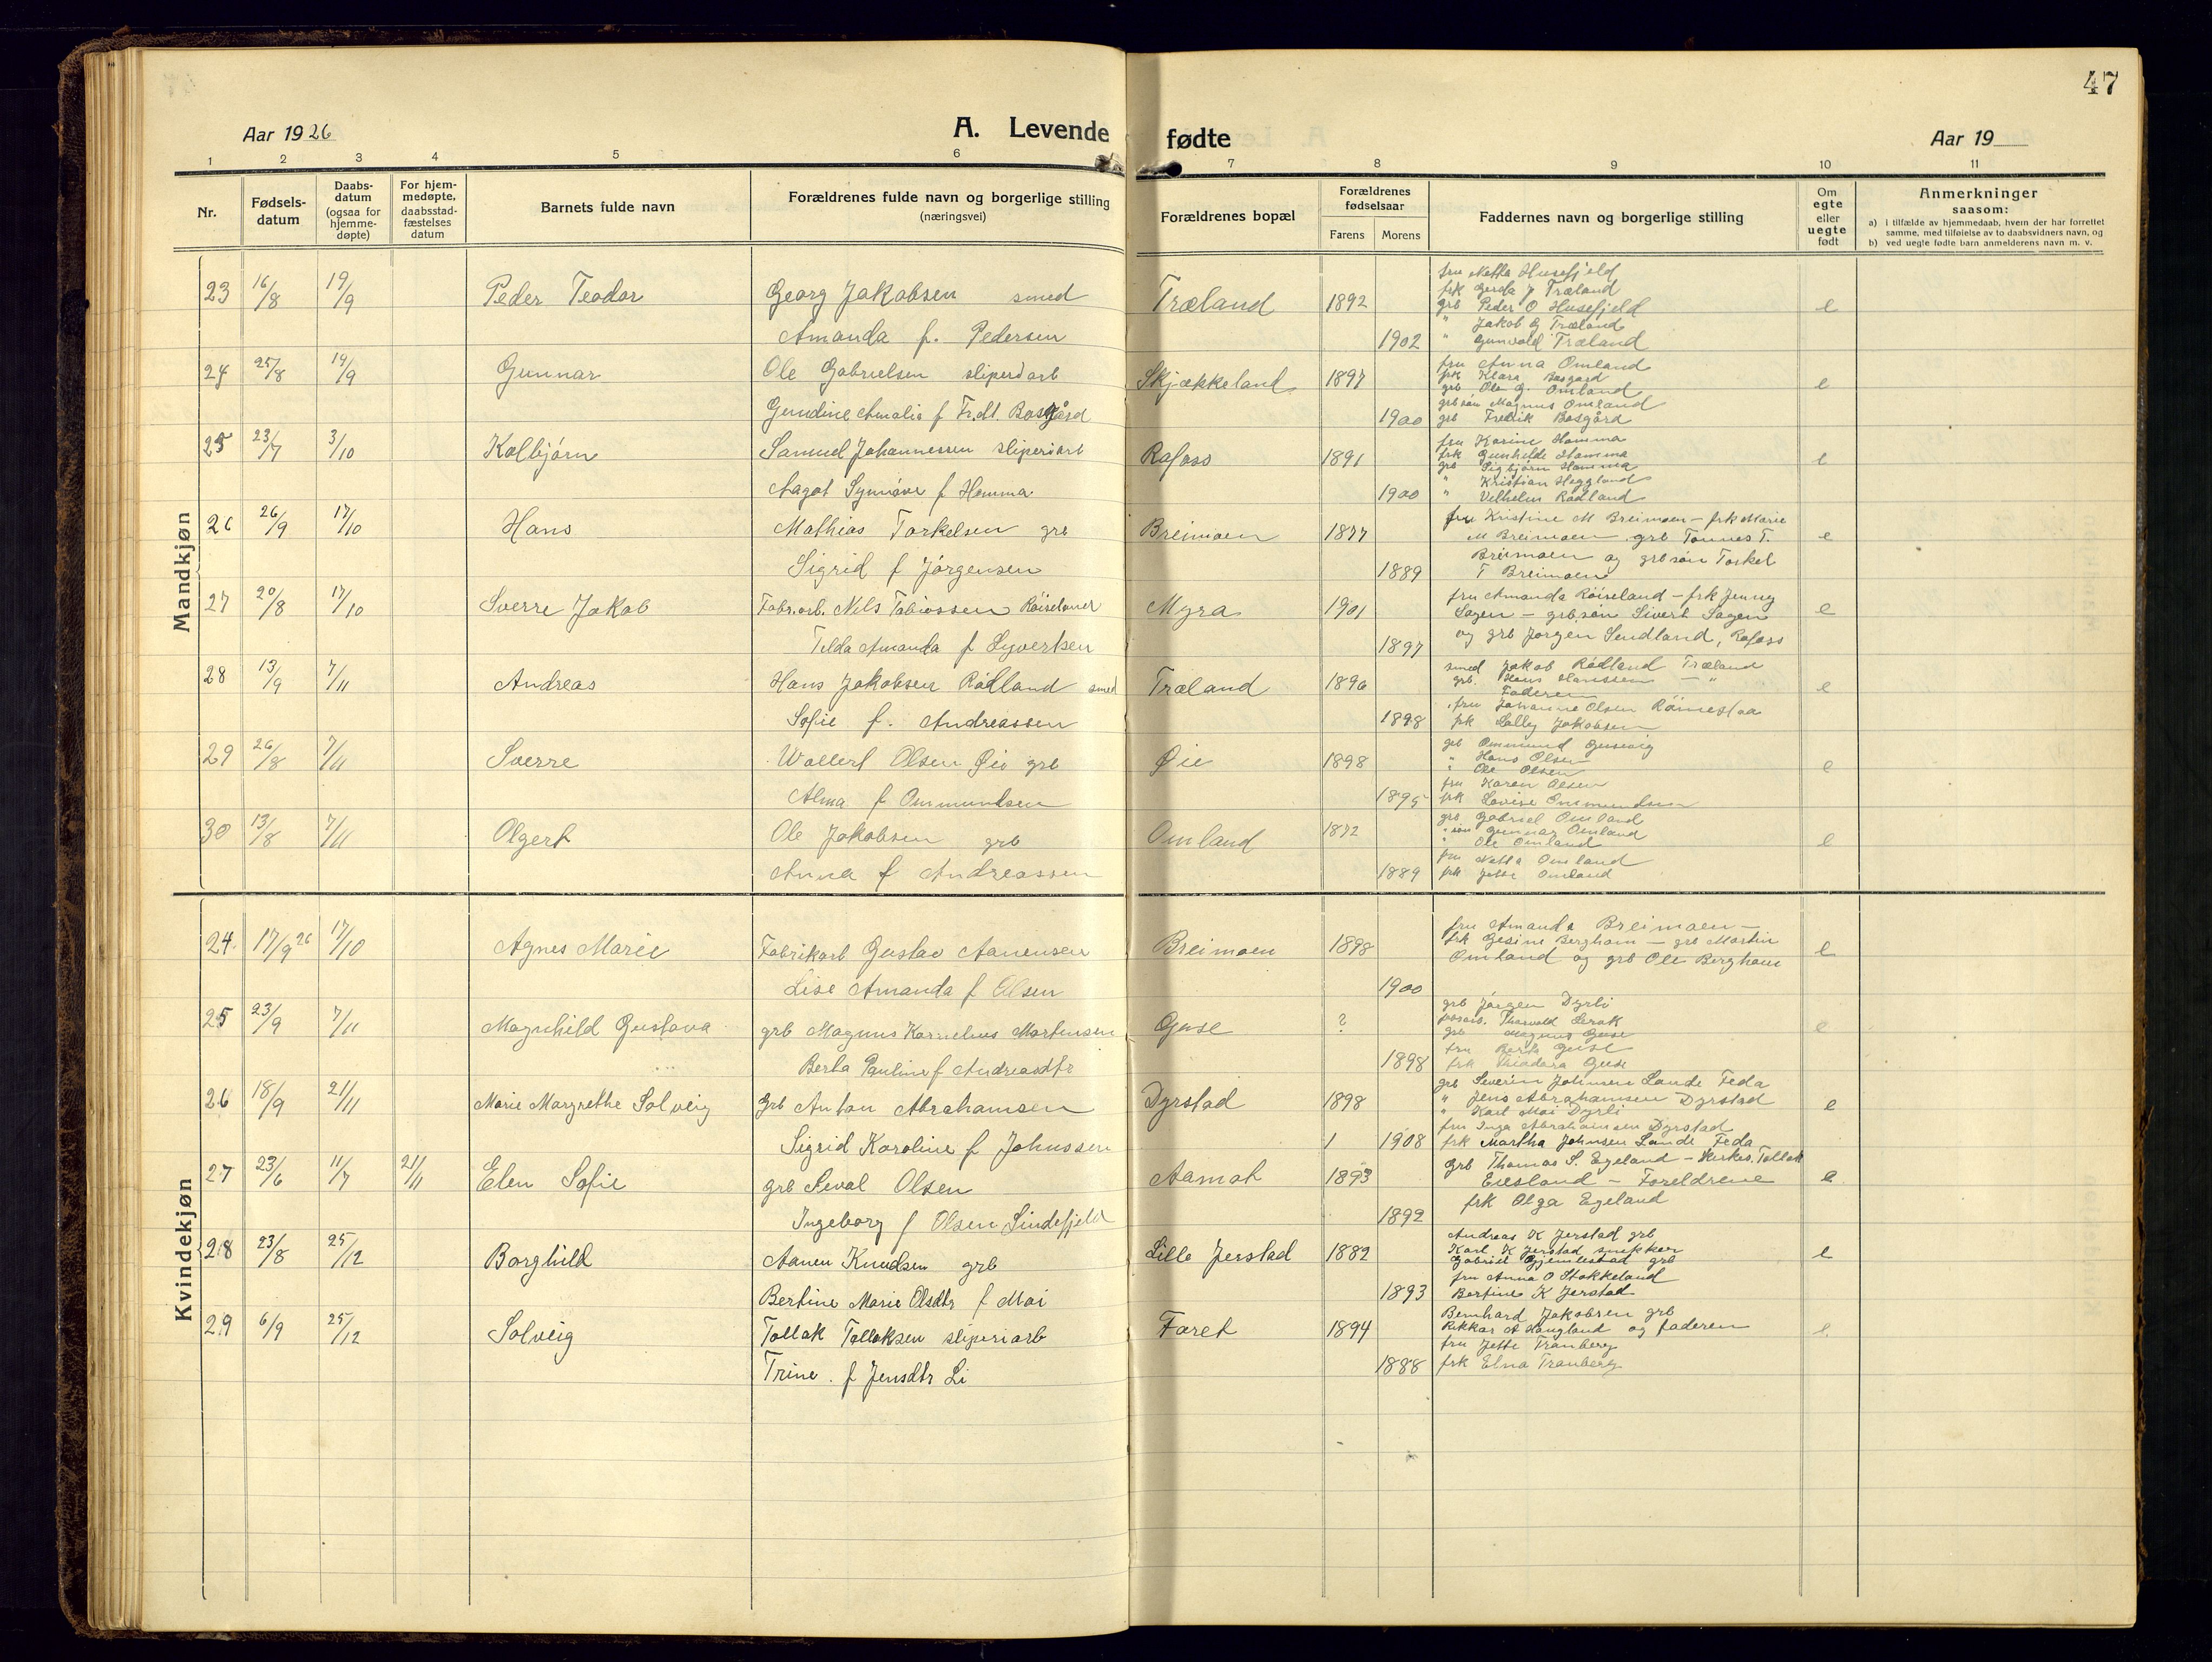 47
Aar 1926
A. Levende fødte
Aar 19
1 2 3 4 5 6 7 8 9 10 11
Nr.
Fødsels-
datum
Daabs-
datum
(ogsaa for
hjemme-
døpte)
For hjem-
medøpte,
daabsstad-
fæstelses
datum
Barnets fulde navn
Forældrenes fulde navn og borgerlige stilling
(næringsvei)
Forældrenes bopæl
Forældrenes
fødselsaar
Farens Morens
Faddernes navn og borgerlige stilling
Om
egte
eller
uegte
født
Anmerkninger
saasom:
a) i tilfælde av hjemmedaab, hvem der har forrettet
samme, med tilføielse av to daabsvidners navn, og
b) ved uegte fødte barn anmelderens navn m. v.
Mandkjøn
23 16/8 19/9 Peder Teodor Georg Jakobsen smed Træland 1892 e
Amanda f. Pedersen 1902
fru Netta Husefjeld
frk Gerda J Træland
grb Peder O Husefjeld
" Jakob G Træland
" Gunvald Træland
24 25/8 19/9 Gunnar Ole Gabrielsen sliperiarb Skjækkeland 1897 e
Gundine Amalie f Fr.dt. Bosgård 1900
fru Anna Omland
frk Klara Bosgård
grb Ole G. Omland
grb søn Magnus Omland
grb Fredrik Bosgård
25 23/7 3/10 Kolbjørn Samuel Johannessen sliperiarb Rafoss 1891 e
Aagot Synnøve f Homma 1900
fru Karine Homma
frk Gunhilde Homma
grb Sigbjørn Homma
" Kristian Heggland
" Vilhelm Rødland
26 26/9 17/10 Hans Mathias Torkelsen grb Breimoen 1877 e
Sigrid f Jørgensen 1889
fru Kristine M Breimoen - frk Marie
M Breimoen grb Tønnes T.
Breimoen og grb søn Torkel
T Breimoen
27 20/8 17/10 Sverre Jakob Fabr.arb. Nils Tobiassen Röiseland Myra 1901 e
Tilda Amanda f Syvertsen 1897
fru Amanda Röiseland - frk Jenny
Sagen - grb.søn Sivert Sagen
og grb Jørgen Sundland, Rafoss
28 13/9 7/11 Andreas Hans Jakobsen Rødland smed Træland 1896 e
Sofie f. Andreassen 1898
smed Jakob Rødland Træland
grb. Hans Hanssen - "
Faderen
fru Johanne Olsen Rørnestaa
frk Lally Jakobsen
29 26/8 7/11 Sverre Wollert Olsen Øie grb Øie 1898 e
Alma f Ommundsen 1895
grb Ommund Gusevig
" Hans Olsen
" Ole Olsen
fru Karen Olsen
frk Lovise Ommundsen
30 13/8 7/11 Olgert Ole Jakobsen grb Omland 1872 e
Anna f Andreassen 1889
grb Gabriel Omland
" søn Gunnar Omland
" Ole Omland
fru Netta Omland
frk Jette Omland
Kvindekjøn
24 17/9 26 17/10 Agnes Marie Fabrikarb Gustav Aanensen Breimoen 1898 e
Lise Amanda f Olsen 1900
fru Amanda Breimoen -
frk Gesine Bergham - grb Martin
Omland og grb Ole Bergham
25 23/9 7/11 Magnhild Gustava grb Magnus Kornelius Mortensen Guse ? e
Berta Pauline f Andreasdtr 1898
grb Jørgen Dyrli
Thorvald Lerak
grb Magnus Guse
fru Berta Guse
frk Theodora Guse
26 18/9 21/11 Marie Margrethe Solveig Grb Anton Abrahamsen Dyrstad 1898 e
Sigrid Karoline f Johnssen 1 1908
grb Severin Johnsen Lande Feda
" Jens Abrahamsen Dyrstad
" Karl Moi Dyrli
fru Inga Abrahamsen Dyrstad
frk Martha Johnsen Lande Feda
27 23/6 11/7 21/11 Elen Sofie grb Seval Olsen Aamot 1893 e
Ingeborg f Olsen Lindefjeld 1892
Grb Thomas S. Egeland - Kirkes. Tollak
Eiesland - Foreldrene
frk Olga Egeland
28 23/8 25/12 Borghild Aanen Knudsen grb Lille Jerstad 1882 e
Bertine Marie Olsdtr f Moi 1893
Andreas K Jerstad grb
Karl K Jerstad snekker
Gabriel Gjemlestad grb
fru Anna O Stokkeland
Bertine K Jerstad
29 6/9 25/12 Solveig Tollak Tollaksen sliperiarb Foret 1894 e.
Trine. f Jensdtr Li 1888
Bernhard Jakobsen grb
Rikkar A Haugland og faderen
fru Jette Tranberg
frk Elna Tranberg